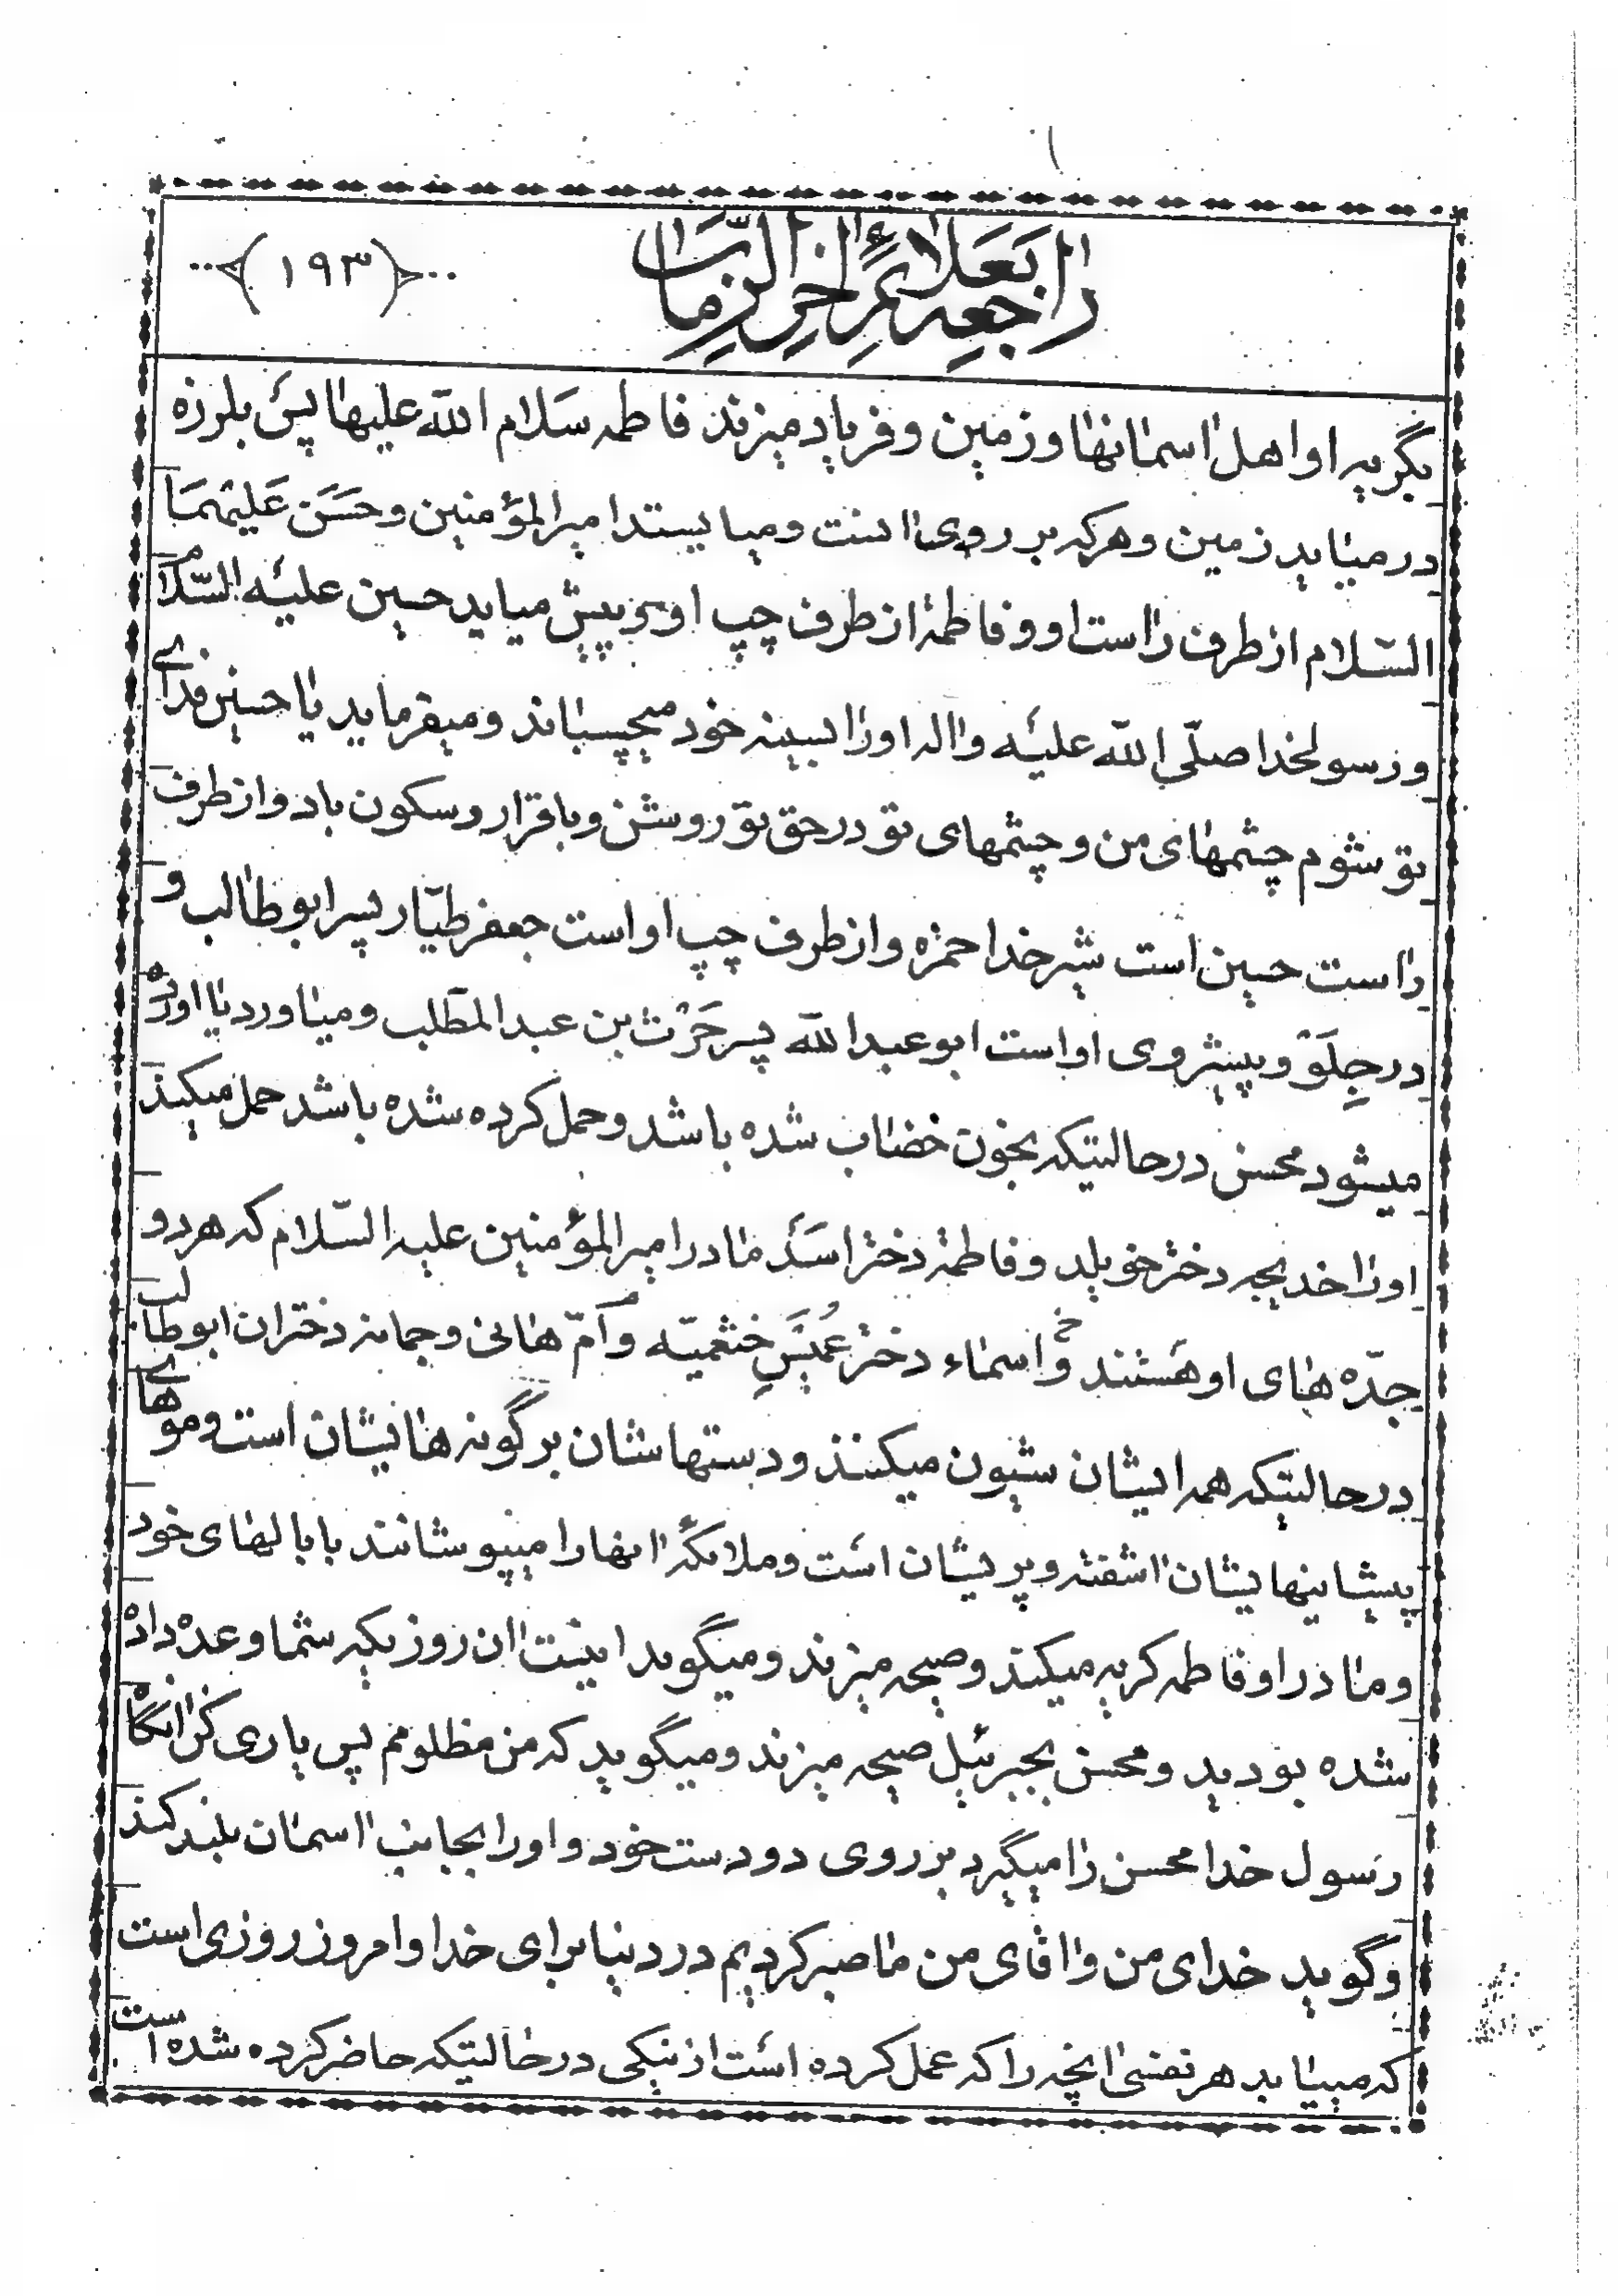 راجعه بعلائم اخر الزمان
(۱۹۳)
بگریه او اهل اسمانها و زمین و فریاد میزند فاطمه سَلام الله علیها پس بلرزه
درمیاید زمین و هرکه بر روی انست و میایستد امیرالمؤمنین و حسَن عَلیهمَا
السّلام از طرف راست او و فاطمه از طرف چپ او و پیش میاید حسین علیه السّلام
و رسولخدا صلّی الله علیه واله او را بسینه خود میچسباند و میفرماید یا حسین فدای
تو شوم چشمهای من و چشمهای تو در حق تو روشن و با قرار و سکون باد و از طرف
راست حسین است شیر خدا حمزه و از طرف چپ او است جعفر طیّار پسر ابوطالب و
در جِلَوْ و پیشروی او است ابوعبدالله پسر حَرْث بن عبدالمطّلب و میاورد یا اورده
میشود محسن در حالتیکه بخون خضاب شده باشد و حمل کرده شده باشد حمل میکند
او را خدیجه دختر خویلد و فاطمه دختر اسَد مادر امیرالمؤمنین علیه السّلام که هر دو
جدّه های او هستند و اسماء دختر عُمَیسِ خثعمیّه و اُمّ هانی و جمانه دختران ابوطالب
درحالتیکه همه ایشان شیون میکنند و دستهاشان بر گونه هایشان است و موهای
پیشانیهایشان اشفته و پریشان است و ملائکه انها را میپوشانند با بالهای خود
و مادر او فاطمه گریه میکند و صیحه میزند و میگوید اینست ان روزیکه شما وعده داده
شده بودید و محسن بجبرئیل صیحه میزند و میگوید که من مظلومم پس یاری کن انگاه
رسول خدا محسن را میگیرد بر روی دو دست خود و او را بجانب اسمان بلند کند
و گوید خدای من و اقای من ما صبر کردیم در دنیا برای خدا و امروز روزی است
که مییابد هر نفسی انچه را که عمل کرده است از نیکی در حالتیکه حاضر کرده شده است